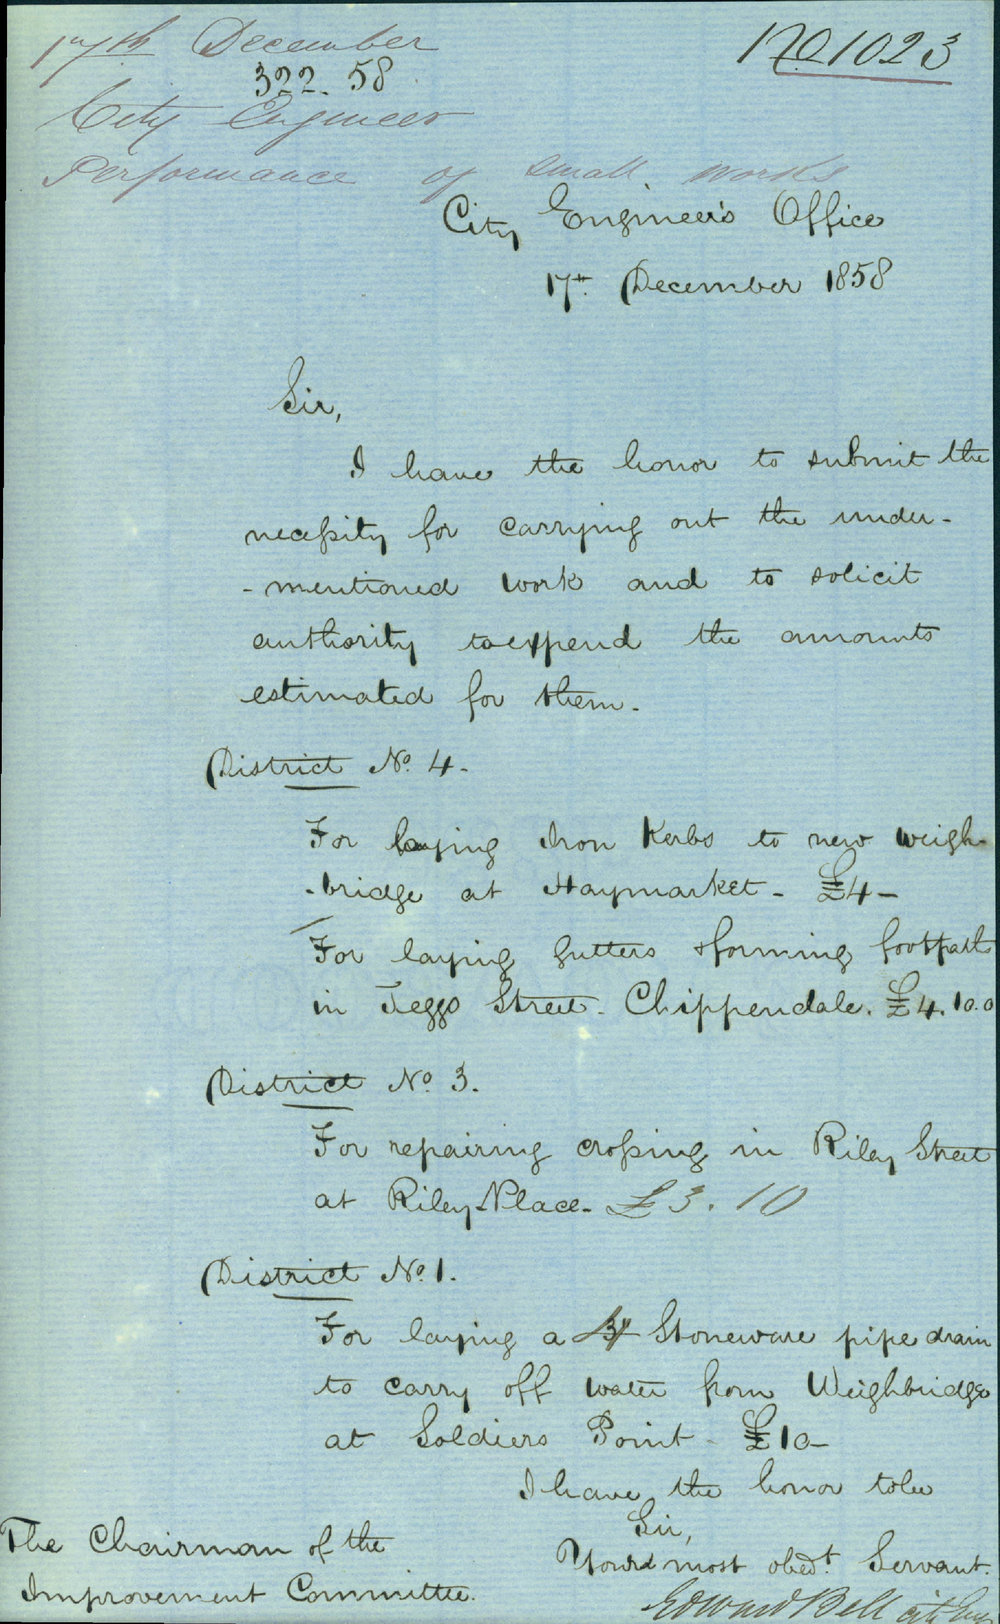 17th December
No 1023
322. 58
City Engineer
Performance of small works
City Engineer's Office
17th. December 1858
Sir,
I have the honor to submit the
necessity for carrying out the under-
-mentioned work and to solicit
authority to expend the amounts
estimated for them.
District No. 4.
For laying Iron Kerbs to new weigh-
-bridge at Haymarket - £4 -
For laying gutters & forming footpath
in Teggs Street. Chippendale. £4.10.0
District No 3.
For repairing crossing in Riley Street
at Riley Place - £3.10
District No. 1.
For laying a Stoneware pipe drain
to carry off water from Weighbridge
at Soldiers Point - £10 -
I have the honor to be
Sir,
Your most obedt. Servant.
Edward Bell City Eng
The Chairman of the
Improvement Committee.